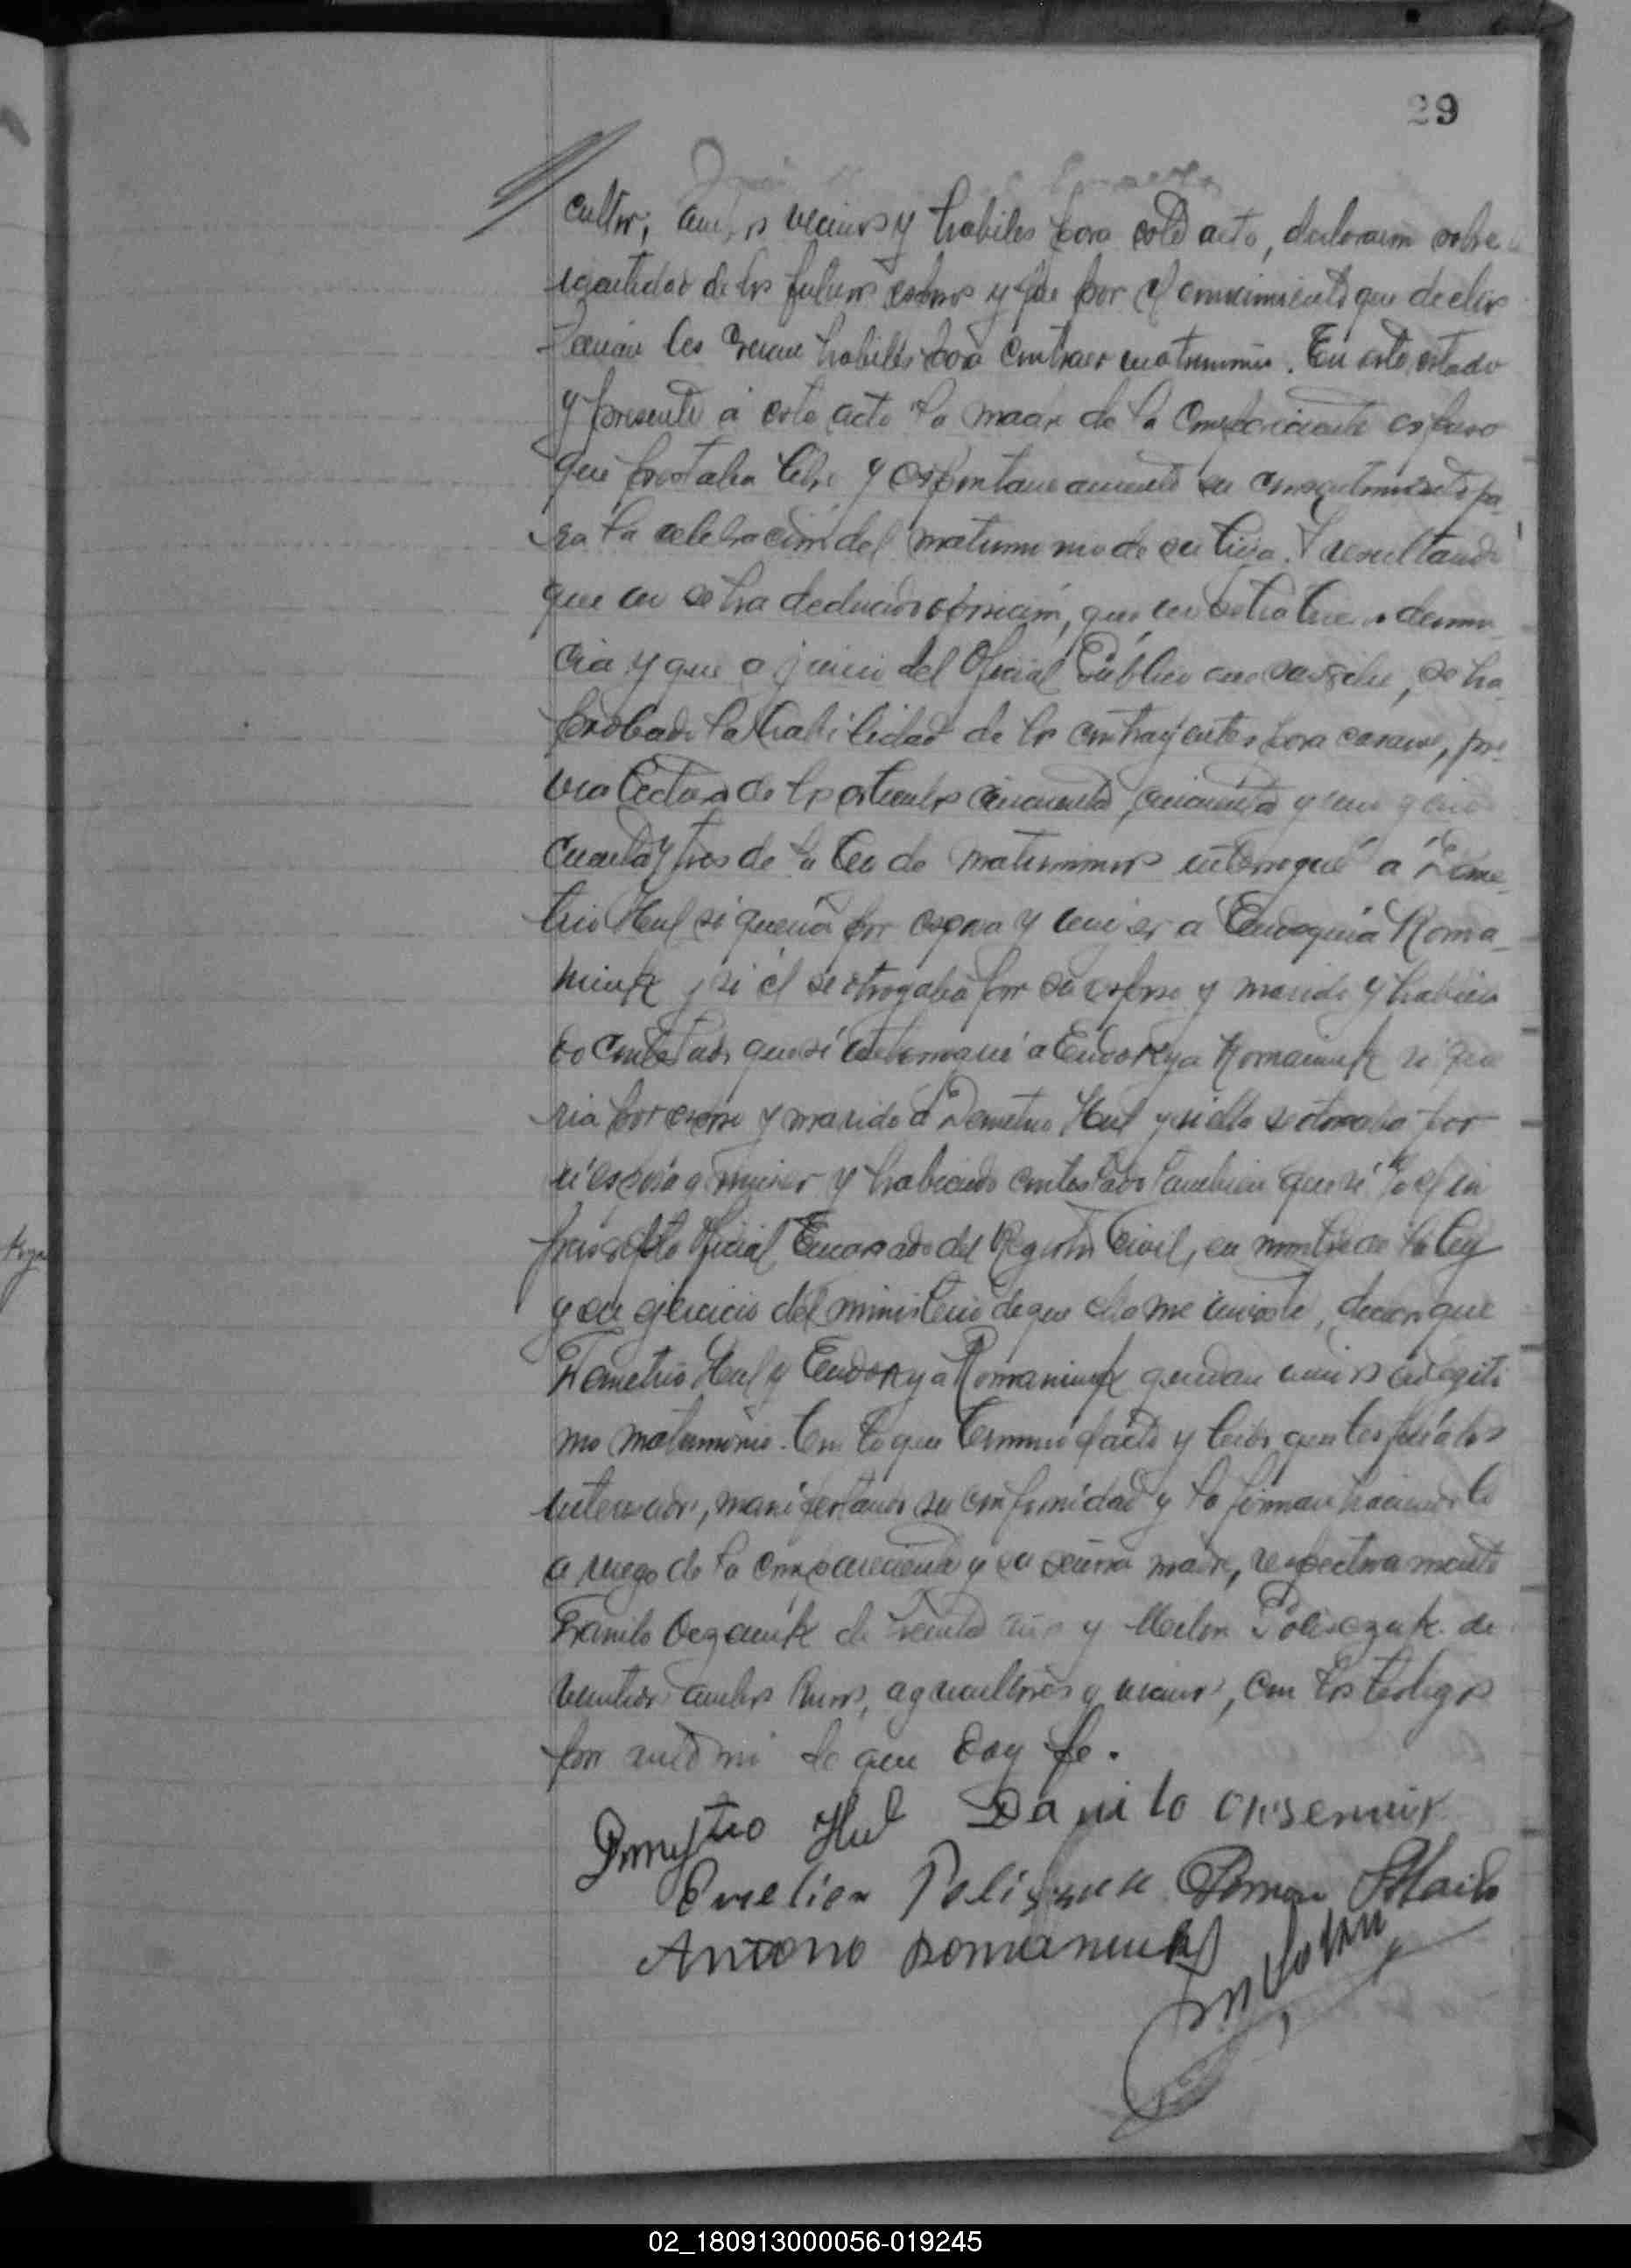 29
cultor, ambos vecinos y habiles para este acto, declararon sobre la
identidad de los futuros esposos y que por el conocimiento que de ellos
tenian les creian habiles para contraer matrimonio. En este estado
y presente á este acto la madre de la compareciente expuso
que prestaba libre y espontaneamente su consentimiento pa-
ra la celebración del matrimonio de su hija. Y resultando
que no se ha deducido oposición, que no se ha hecho denun-
cia y que a juicio del Oficial Público que suscribe, se ha
probado la habilidad de los contrayentes para casarse, pre-
via lectura de los articulos cincuenta, cincuenta y uno y cin
cuenta y tres de la Ley de matrimonios interrogué á Deme-
trio Hul si queria por esposa y mujer á Eudoquia Roma-
niuk y si él se otorgaba por su esposo y marido y habien
do contestado que sí interrogué a Eudokya Romaniuk si que
ria por esposo y marido á Demetrio Hul y si ella se otorgaba por
su esposa y mujer y habiendo contestado tambien que sí Yo el in
frascripto Oficial Encargado del Registro Civil, en nombre de la Ley
y en ejercicio del ministerio de que ella me inviste, declaro que
Demetrio Hul y Eudokya Romaniuk quedan unidos en legiti
mo matrimonio. Con lo que terminó el acto y leido que les fué á los
interesados, manifestando su conformidad y la firman haciendolo
a ruego de la compareciente y su señora madre, respectivamente
Danilo de treinta años y de
veintidos ambos rusos, agricultores y vecinos, con los testigos
por ante mi de que doy fe.
Dmystro Hul Danilo
Emelian Roman
Antono Romaniuk
02_180913000056-019245